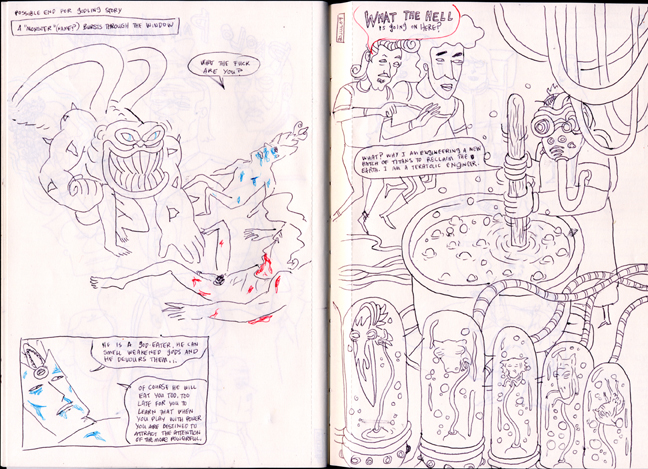 POSSIBLE END FOR GODLING STORY
A "MONSTER" (NAME?) BURSTS THROUGH THE WINDOW
WHAT THE FUCK
ARE YOU?
HE IS A GOD-EATER. HE CAN
SMELL WEAKENED GODS AND
HE DEVOURS THEM...
OF COURSE HE WILL
EAT YOU TOO. TOO
LATE FOR YOU TO
LEARN THAT WHEN
YOU PLAY WITH POWER
YOU ARE DESTINED TO
ATTRACT THE ATTENTION
OF THE MORE POWERFUL.
WHAT THE HELL
IS GOING ON HERE?
WHAT? WHY I AM ENGINEERING A NEW
BATCH OF TITANS TO RECLAIM THE
EARTH. I AM A TERATOLIC ENGINEER.